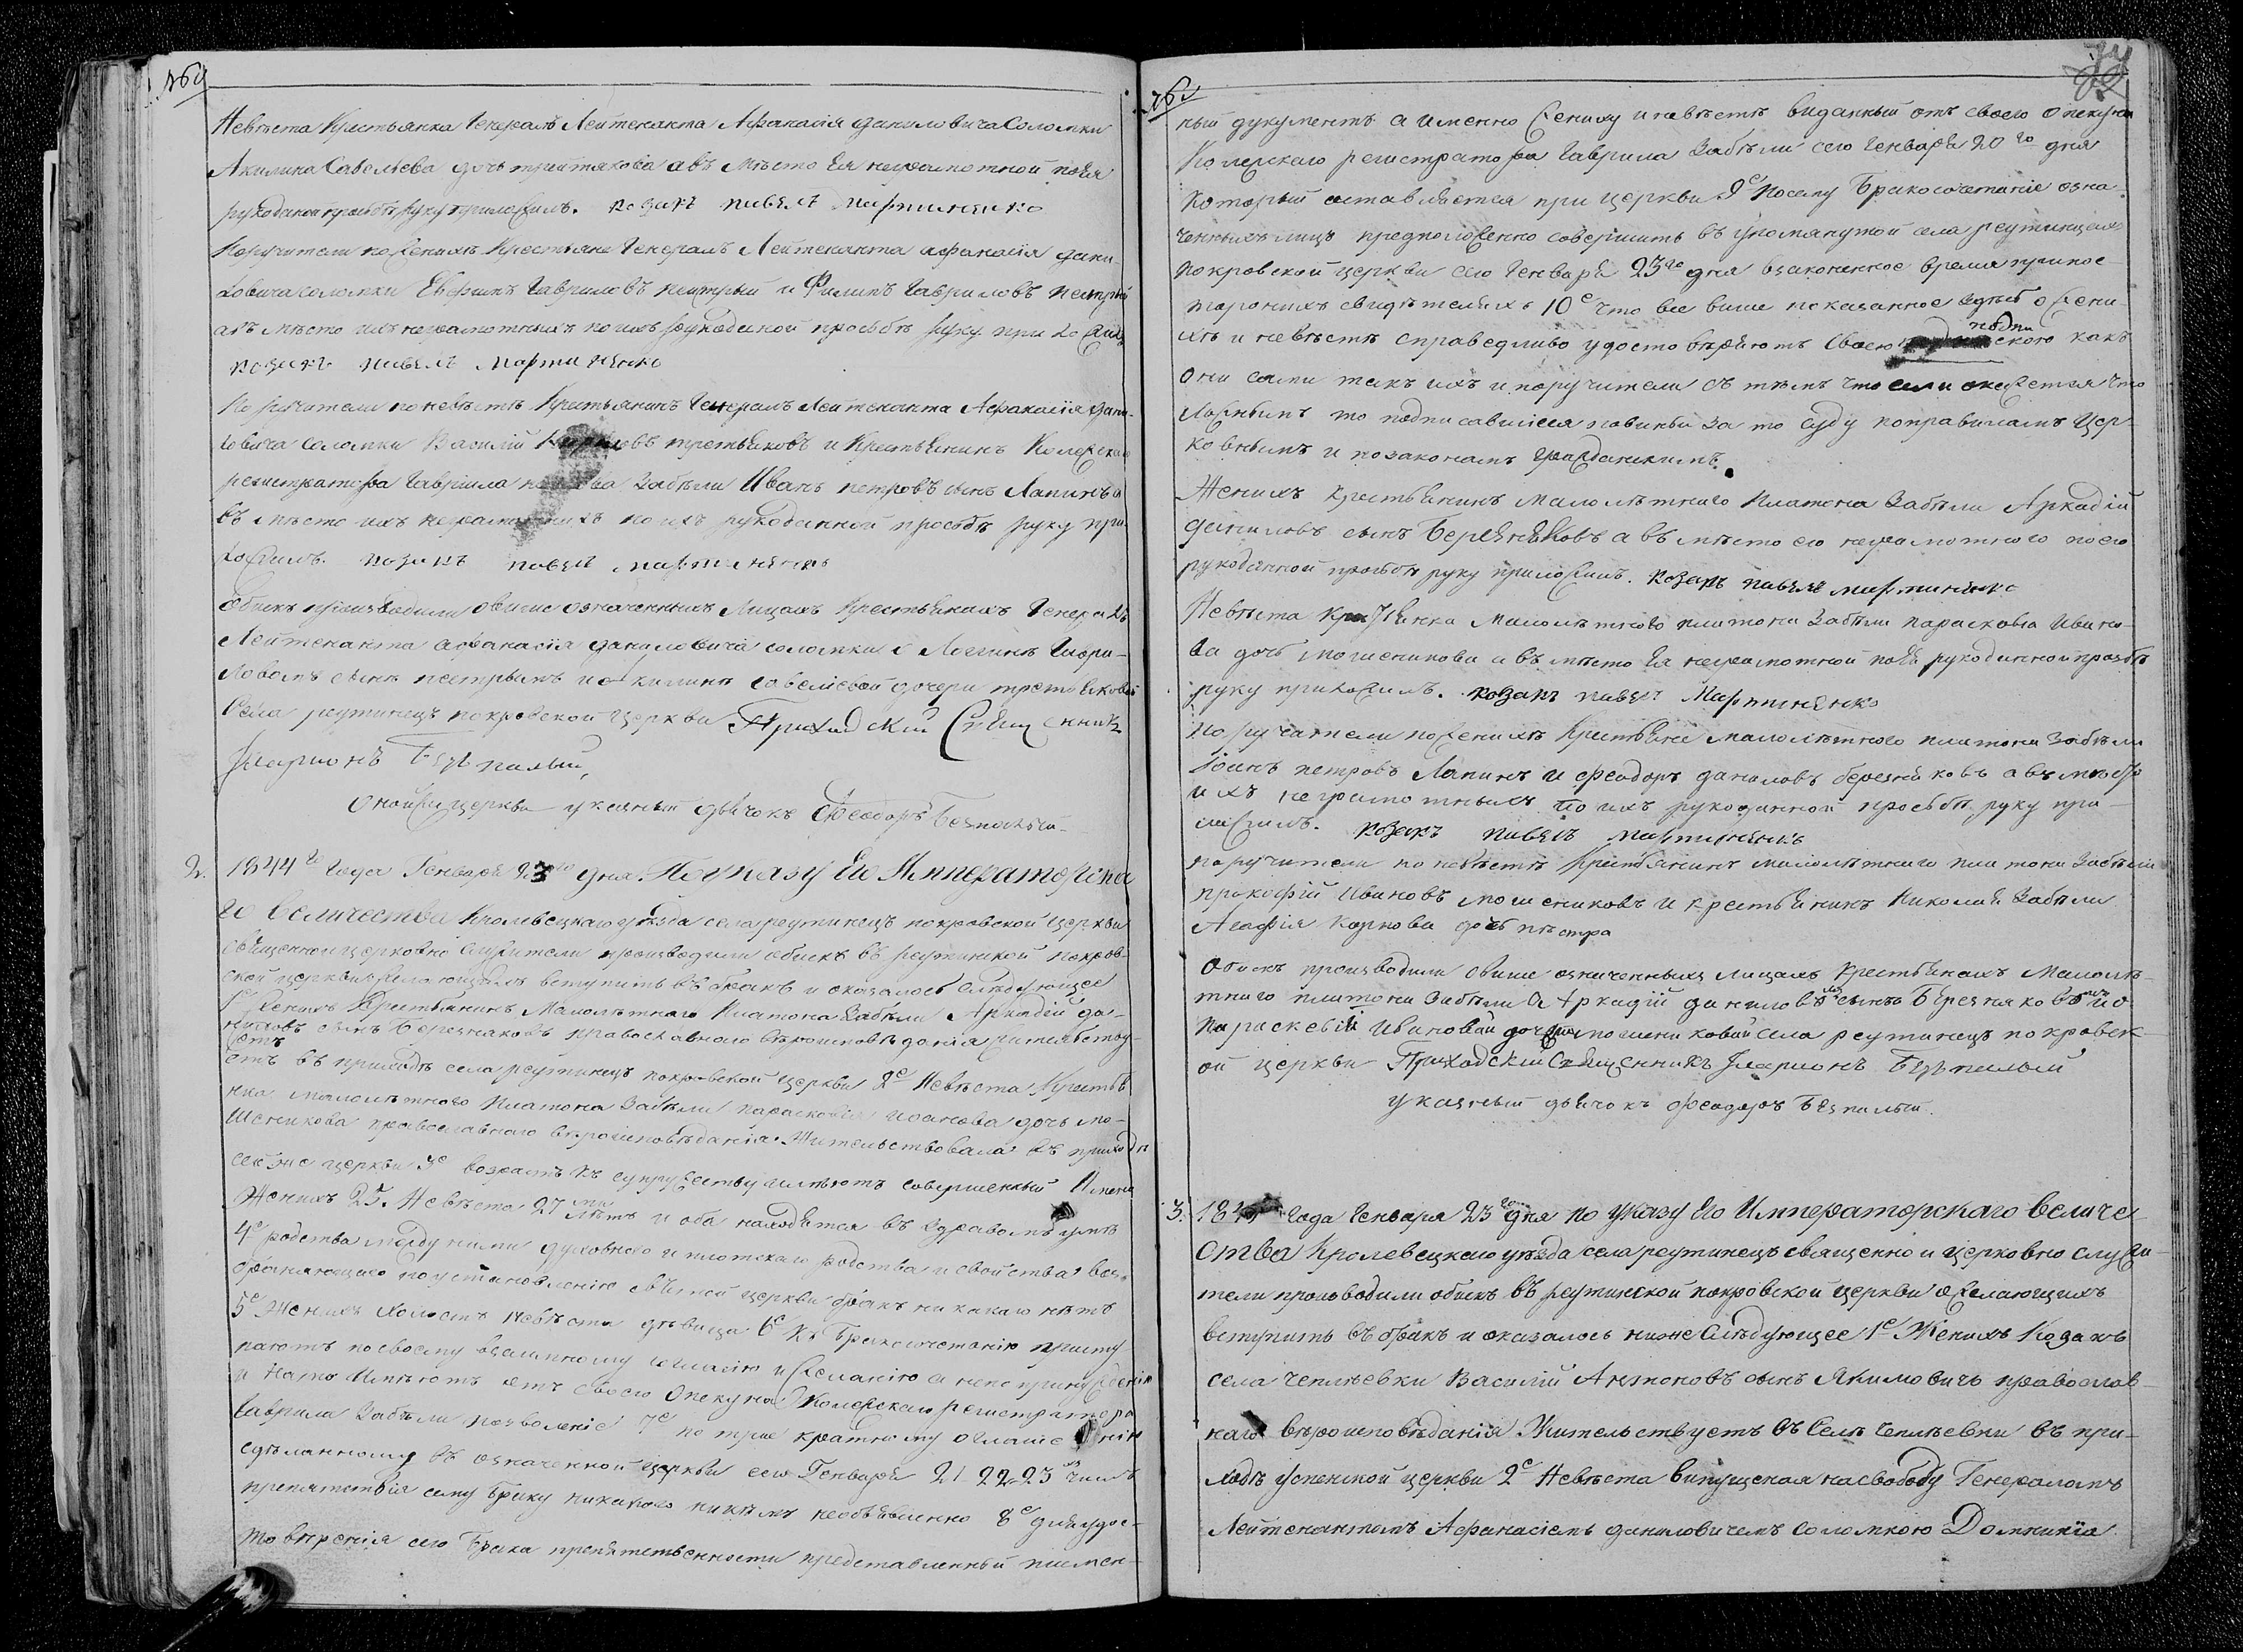 Невѣста Крестьянка Генералъ Лейтенанта Афанасія даниловича Соломки
Акилина Савельева дочь третякова авъ мѣсто Ея неграмотной поея
рукоданой прозьбѣ руку приложилъ. козакъ павелъ мартиненко
Поручители поженихѣ Крестьяне Генералъ Лейтенанта афанасія дани-
ловича соломки Гавриловъ и Филипъ Гавриловъ
авъ мѣсто ихъ неграмотныхъ по ихъ рукоданой прозьбѣ руку приложилъ
козакъ павелъ мартиненко
Поручители поневѣстѣ Крестьянинъ Генералъ Лейтенанта Афанасія дани-
ловича соломки Василій третьяковъ и Крестьянинъ Колежскаго
регистратора Гавріила Забѣли Иванъ петровъ сынъ Лапинъ а
въ мѣсто ихъ неграмотныхъ по ихъ рукоданной прозьбѣ руку при-
ложилъ. козакъ павелъ мартиненко
Обискъ производили овише означенныхъ Лицахъ Крестьянахъ Генералъ
Лейтенанта афанасія даниловича соломки Гаври-
ловомъ сынѣ пестрымъ и акилинѣ савелиевой дочери третьяковой
Села реутинецъ покровской церкви Приходский Священникъ
Иларионъ Безпалый,
онойже церкви указный дьячокъ Феодоръ Безпалый
2. 1844го года Генваря 23го дня. По указу Его Императорска
го величества Кролевецкаго уѣзда села реутинецъ покровской церкви
священно и церковно служители производили обискъ въ реутинской покров-
ской церкви о желающихъ вступить въ бракъ и оказалось слѣдующее
1е женихъ Крестьянинъ Малолѣтнаго Платона Забѣли Аркадій да-
ниловъ сынъ Березняковъ православного вѣроисповѣданія жительству-
етъ въ приходѣ села реутинецъ покровской церкви 2е Невѣста Крестья
нка малолѣтного Платона Забѣли парасковія иоанова дочь мо-
шеникова православного вѣроисповѣданія. Жительствовала въ приходѣ
сей же церкви 3е возрастъ къ супружеству имѣютъ совершенный Имѣно
Женихъ 25. Невѣста 27 лѣтъ и оба находятся въ здравомъ умѣ
4е родства между ними духовного и плотскаго родства и свойства воз-
браняющаго поустановленію святой церкви бракъ никакаго нѣтъ
5е Женихъ холостъ невѣста дѣвица 6е Къ Бракосочетанію присту
паютъ посвоему взаимному согласію и желанію а непопринужденію
и Нато имѣютъ отъ своего Опекуна Колежскаго регистратора
Гаврила Забѣли позволеніе 7е по трое кратному оглашенію
сдѣланному въ означенной церкви сего Генваря 21 22 23 чиселъ
препятствія сему браку никакого никѣмъ необъявленно 8е дляудос-
товѣренія сего Брака препятственности представленный писмен-
ный дукументъ а именно жениху и невѣстѣ виданный отъ своего опекуна
Колежскаго регистратора Гаврила Забѣли сего Генваря 20го дня
который оставляется при церкви 9е Посему Бракосочетаніе озна
ченныхъ лицъ предположенно совершить въ упомянутой села реутинцахъ
покровской церкви сего Генваря 23го дня взаконенное время припос-
таронихъ свидѣтеляхъ 10е что все више показанное здѣсь о жени-
хѣ и невѣстѣ справедливо удостовѣряютъ своею подпискою какъ
они сами такъ ихъ и поручители съ тѣмъ что если окажется что
Ложнымъ то подписавшіеся повиныи за то суду поправиламъ Цер-
ковнымъ и позаконамъ гражданскимъ.
Женихъ Крестьянинъ Малолѣтнаго Платона Забѣли Аркадій
даниловъ сынъ Березняковъ а въ мѣсто его неграмотного поего
рукоданной прозьбѣ руку приложилъ. козакъ павелъ мартиненко
Невѣста Крестьянка Малолѣтного платона Забѣли парасковія Ивано-
ва дочь мошеникова а въ мѣсто Ея неграмотной поея рукоданной прозьбѣ
руку приложилъ. козакъ павелъ Мартиненко
Поручители поженихѣ Крестьяне малолѣтного платона Забѣли
Іоанъ петровъ Лапинъ и феодоръ даниловъ березняковъ авъ мѣсто
ихъ неграмотныхъ по ихъ рукоданной прозьбѣ руку при-
ложилъ. козакъ павелъ мартиненко
поручители по невѣстѣ Крестьянинъ малолѣтнаго платона Забѣли
прокофій Ивановъ мошениковъ и крестьянинъ Николая Забѣли
Агафія Карпова дочь пѣстра
Обискъ производили овише означенныхъ лицахъ Крестьянахъ Малолѣ-
тнаго платона Забѣли Аркадій даниловъ сынъ Березняковъ и о
параскевіи Ивановой дочери мошениковой села реутинецъ покровск-
ой церкви Приходский Священникъ Иларионъ Безпалый
указный дьячокъ феодоръ Безпалый.
3. 184 года Генваря 23го дня по указу Его Императорского величе
ства Кролевецкаго уѣзда села реутинецъ священно и церковно служи-
тели производили обискъ въ реутинской покровской церкви о желающихъ
вступить въ бракъ и оказалось ниже слѣдующее 1е Женихъ Козакъ
села чеплѣевки Василій Антоновъ сынъ Якимовичъ православ-
наго вѣроисповѣданія Жительствуетъ въ селѣ чеплѣевки въ при-
ходѣ Успенской церкви 2е Невѣста випущеная насвободу Генераломъ
Лейтенантомъ Афанасіемъ даниловичемъ соломкою Домникія